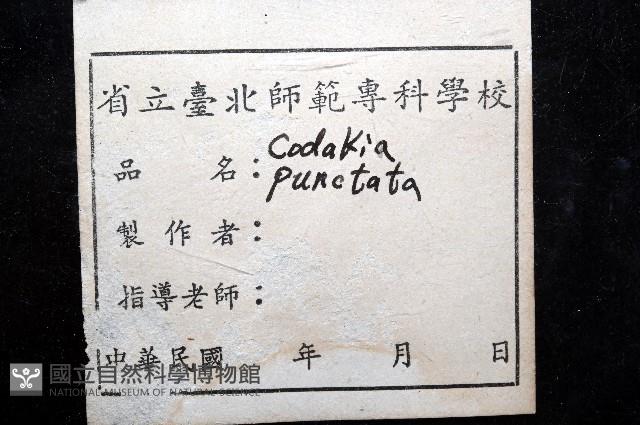 省立臺北師範專科學校
品名：Codakia
punctata
製作者：
指導老師：
中華民國 年 月 日
國立自然科學博物館
NATIONAL MUSEUM OF NATURAL SCIENCE